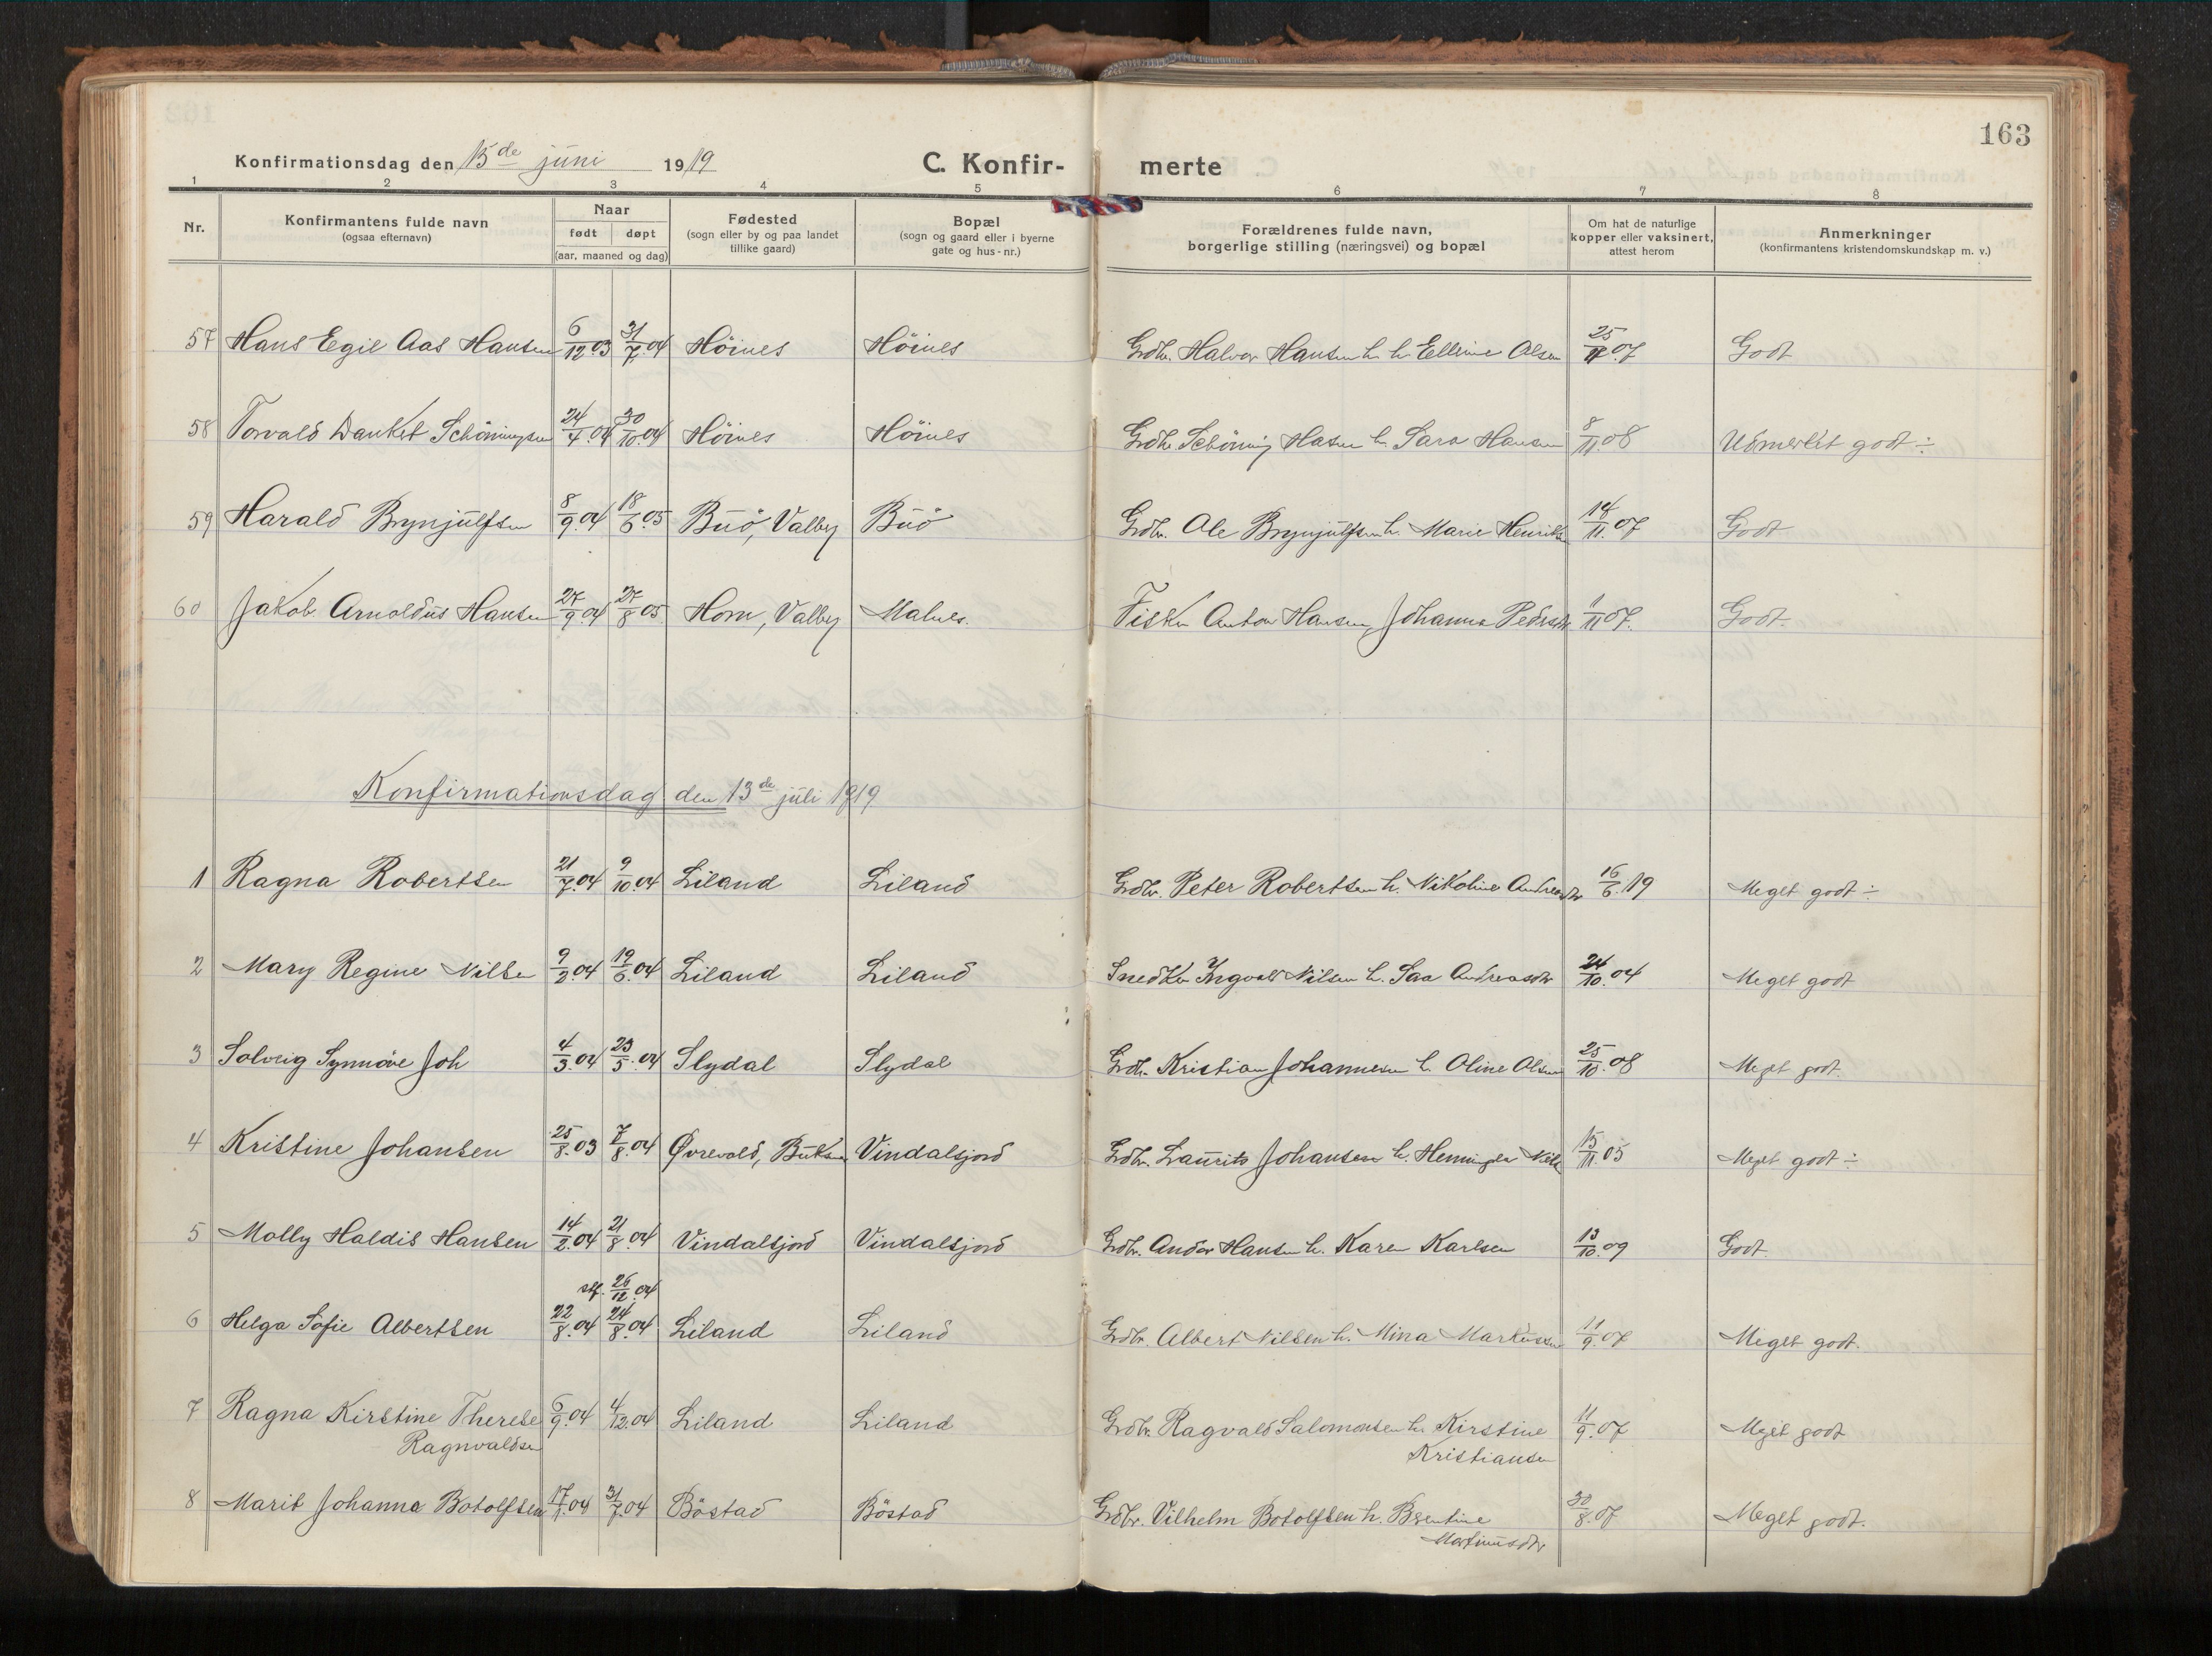 163
Konfirmationsdag den 15de juni 1919 C. Konfir- merte
1 2 3 4 5 6 7 8
Nr. Konfirmantens fulde navn (ogsaa efternavn) Naar født døpt (aar, maaned og dag) Fødested (sogn eller by og paa landet tillike gaard) Bopæl (sogn og gaard eller i byerne gate og hus-nr.) Forældrenes fulde navn, borgerlige stilling (næringsvei) og bopæl Om hat de naturlige kopper eller vaksinert, attest herom Anmerkninger (konfirmantens kristendomskundskap m. v.)
57 Hans Egil Aas Hansen 6/12.03 31/7.04 Höines Höines Grdbr. Halvor Hansen h. h. Elline Olsen 25/11.07 Godt
58 Torvald Danket Schöningsen 24/4.04 30/10.04 Höines Höines Grdbr. Schöning Hasen h. Sara Hansen 8/11.08 Udmerket godt ÷
59 Harald Brynjulfsen 8/9.04 18/6.05 Buö, Valbey Buö Grdbr. Ole Brynjulfsen h. Marie Henriks 14/11.07 Godt
60 Jakob Arnoldus Hansen 27/9.04 27/8.05 Horn, Valbey Malnes. Fisker Anton Hansen, Johanna Pedersdtr 1/11.07. Godt.
Konfirmationsdag den 13de juli 1919
1 Ragna Robertsen 21/7.04 9/10.04 Liland Liland Grdbr. Peter Robertsen h. Nikoline Andreasdtr 16/6.19 Meget godt ÷
2 Mary Regine Nilse 9/2.04 19/6.04 Liland Liland Snedker Ingvald Nilsen h. Sara Andreasdtr 24/10.04 Meget godt
3 Solveig Synnöve Joh 4/3.04 23/5.04 Slydal Slydal Grdbr. Kristian Johannesen h. Oline Olsen 25/10.08 Meget godt.
4 Kristine Johansen 25/8.03 7/8.04 Øvrevold, Buksn Vindalsjord Grdbr. Laurits Johansen h. Nils 15/11.05 Meget godt ÷
5 Molly Haldis Hansen 14/2.04 21/8.04 Vindalsjord Vindalsjord Grdbr. Andor Hansen h. Karen Karlsen 13/10.09 Godt
stf. 26/12.04
6 Helga Sofie Albertsen 22/8.04 24/8.04 Liland Liland Grdbr. Albert Nilsen h. Mina Markussen 11/9.07 Meget godt.
7 Ragna Kirstine Therese 6/9.04 4/12.04 Liland Liland Grdbr. Ragvald Salomonsen h. Kirstine 11/9.07 Meget godt
Ragnvaldsen Kristiansen
8 Marit Johanna Botolfsen 17/1.04 31/7.04 Böstad Böstad Grdbr. Vilhelm Botolfsen h. Bsentine 30/8.07 Meget godt.
Martinusdtr